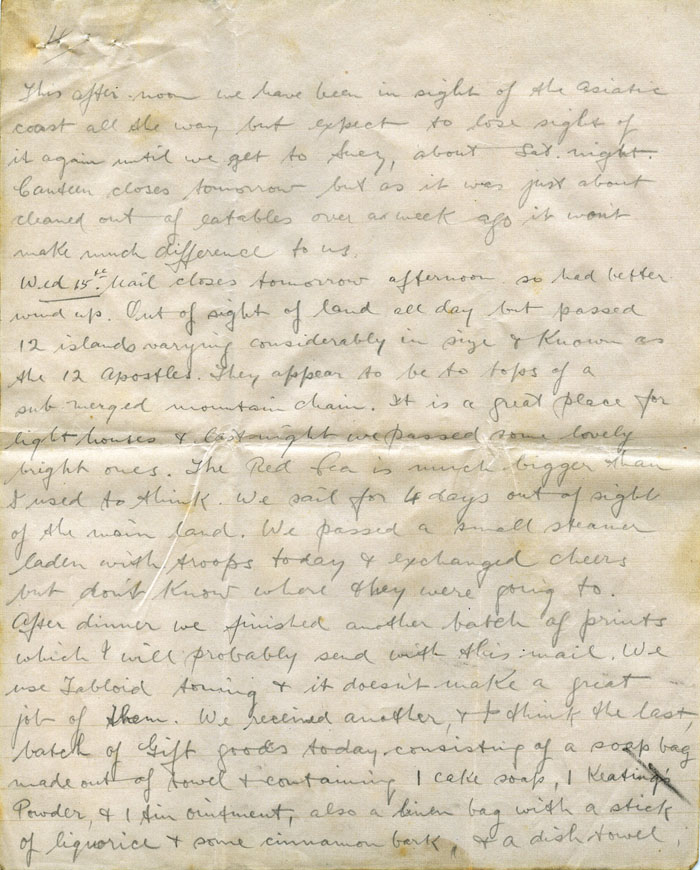 4
This after-noon we have been in sight of the Asiatic
coast all the way but expect to lose sight of
it again until we get to Suez, about Sat. night.
Canteen closes tomorrow but as it was just about
cleaned out of eatables over a week ago it wont
make much difference to us.
Wed 15th. Mail closes tomorrow afternoon so had better
wind up. Out of sight of land all day but passed
12 islands varying considerably in size & known as
the 12 Apostles. They appear to be to tops of a
sub merged mountain chain. It is a great place for
light houses & last night we passed some lovely
bright ones. The Red Sea is much bigger than
I used to think. We sail for 4 days out of sight
of the main land. We passed a small steamer
laden with troops today & exchanged cheers
but don't know where they were going to.
After dinner we finished another batch of prints
which I will probably send with this mail. We
use Tabloid toning & it doesn't make a great
job of them. We received another, & I think the last,
batch of Gift goods today consisting of a soap bag
made out of towel & containing 1 cake soap, 1 Keating's
Powder, & 1 tin ointment, also a linen bag with a stick
of liquorice & some cinnamon bark, & a dish towel.